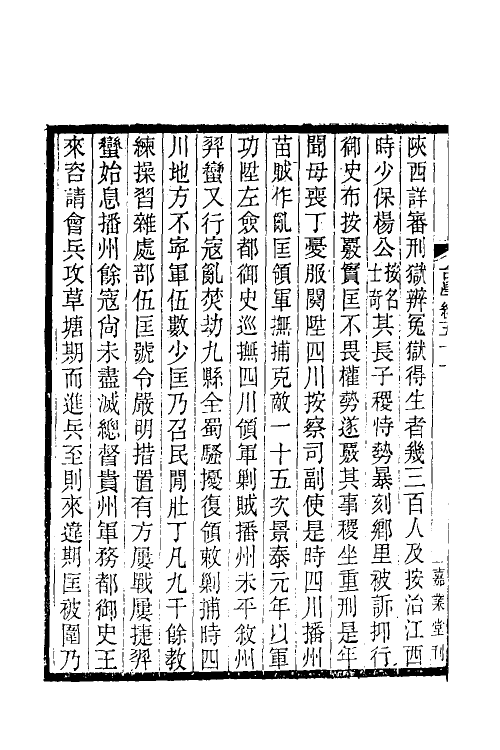 陝西詳審刑獄辨冤獄得生者幾三百人及按治江西
時少保楊公按名士奇其長子稷恃勢暴刻鄉里被訴抑行
御史布按覈實匡不畏權勢遂覈其事稷坐重刑是年
聞母喪丁憂服闋陞四川按察司副使是時四川播州
苗賊作亂匡領軍撫捕克敵一十五次景泰元年以軍
功陞左僉都御史巡撫四川領軍剿賊播州未平敘州
羿蠻又行寇亂焚劫九縣全蜀騷擾復領敕剿捕時四
川地方不寧軍伍數少匡乃召民閒壯丁凡九千餘教
練操習雜處部伍匡號令嚴明措置有方屢戰屢捷羿
蠻始息播州餘寇尙未盡滅總督貴州軍務都御史王
來咨請會兵攻草塘期而進兵至則來違期匡被圍乃
嘉業堂刊